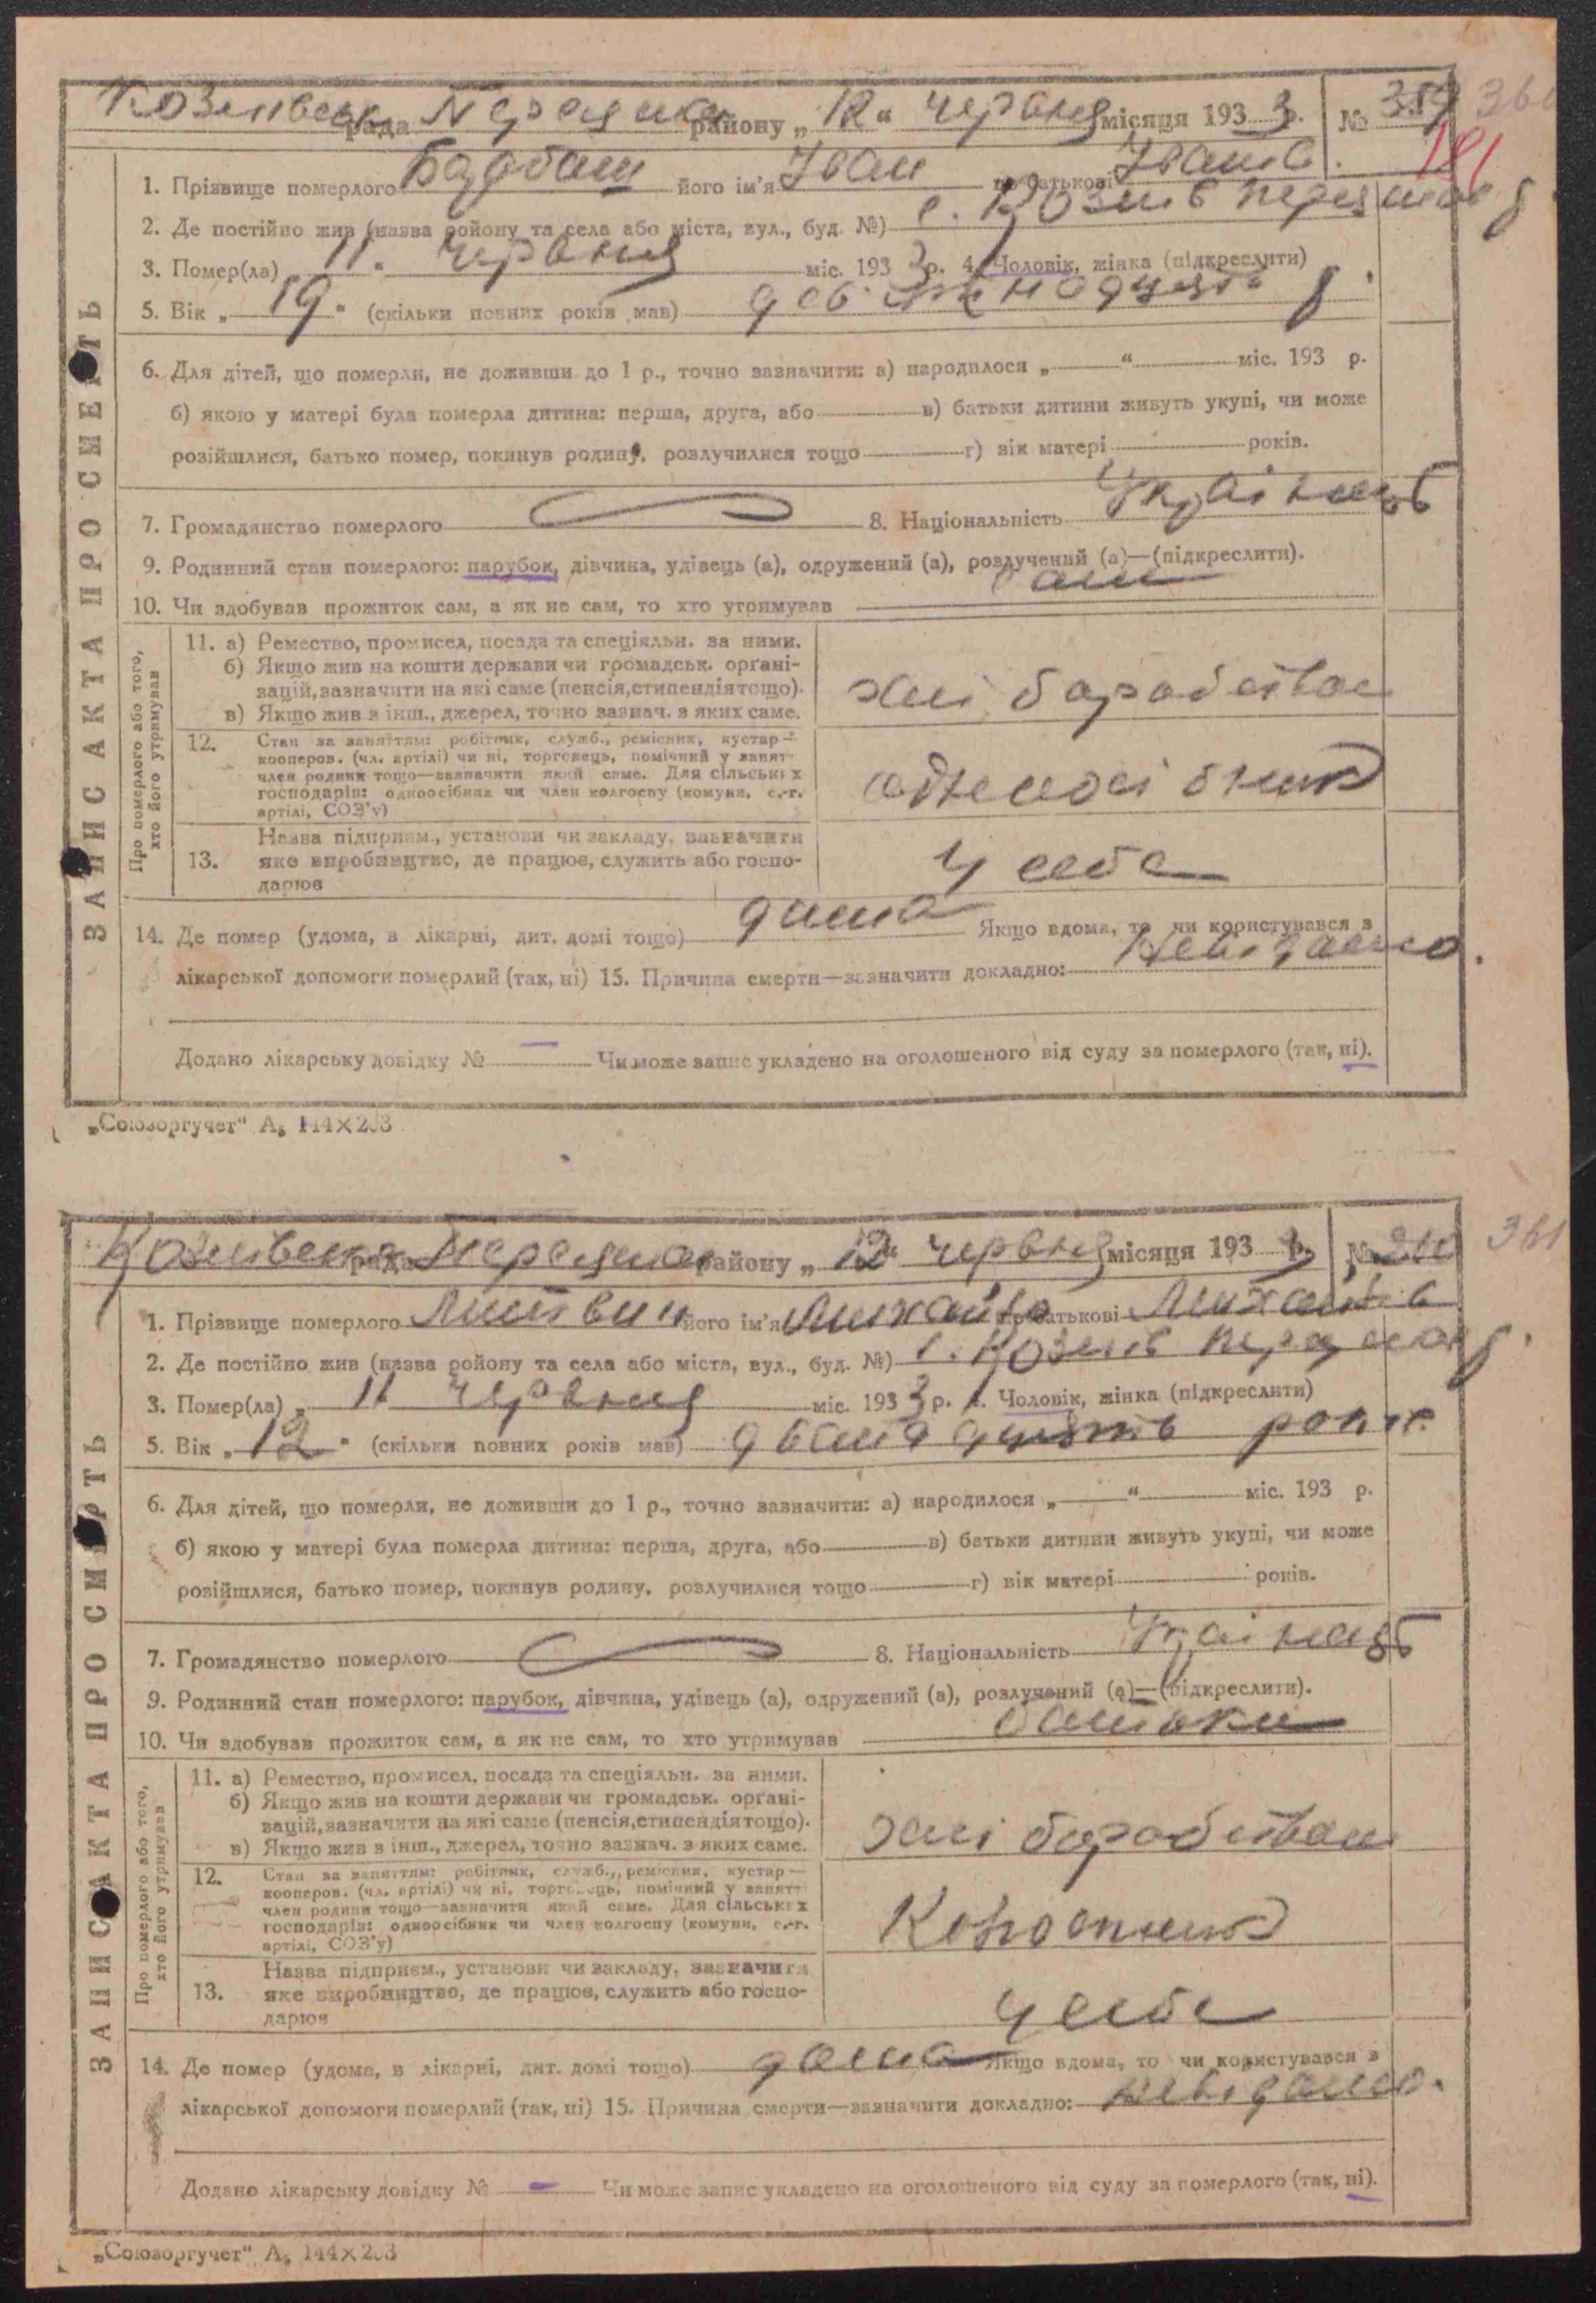 Козинівська рада Переяславськ району „ 12 “ червня місяця 1933 р. № 359 360
181
1. Прізвище померлого його ім'я Іван по батькові Іванів
2. Де постійно жив (назва району та села або міста, вул., буд. №) с. Козинів р
3. Помер(ла) 11 червня міс. 1933 р. 4. Чоловік, жінка (підкреслити)
5. Вік „ 19 “ (скільки повних років мав) р.
6. Для дітей, що померли, не доживши до 1 р., точно зазначити: а) народилося „ “ міс. 193 р.
б) якою у матері була померла дитина: перша, друга, або в) батьки дитини живуть укупі, чи може
розійшлися, батько помер, покинув родину, розлучилися тощо г) вік матері років.
7. Громадянство померлого 8. Національність Українець
9. Родинний стан померлого: парубок, дівчина, удівець (а), одружений (а), розлучений (а)—(підкреслити).
10. Чи здобував прожиток сам, а як не сам, то хто утримував сам
ЗАПИС АКТА ПРО СМЕРТЬ
Про померлого або того, хто його утримував
11. а) Ремество, промисел, посада та спеціяльн. за ними.
б) Якщо жив на кошти держави чи громадськ. орґані-
зацій, зазначити на які саме (пенсія, стипендія тощо).
в) Якщо жив з інш., джерел, точно зазнач. з яких саме.
хліборобством
12. Стан за заняттям: робітник, служб., ремісник, кустар —
кооперов. (чл. артілі) чи ні, торговець, помічний у занятт
член родини тощо—зазначити який саме. Для сільських
господарів: одноосібник чи член колгоспу (комуни, с.-г.
артілі, СОЗ'у)
одноосібник
13. Назва підприєм., установи чи закладу, зазначити
яке виробництво, де працює, служить або госпо-
дарює
у себе
14. Де помер (удома, в лікарні, дит. домі тощо) дома Якщо вдома, то чи користувався з
лікарської допомоги померлий (так, ні) 15. Причина смерти—зазначити докладно: Невідомо.
Додано лікарську довідку № — Чи може запис укладено на оголошеного від суду за померлого (так, ні).
„Союзоргучет“ А₅ 144×203
Козинівська рада Переяславськ району „ 12 “ червня місяця 1933 р. № 361
1. Прізвище померлого Литвин його ім'я Михайло по батькові Михайлів
2. Де постійно жив (назва району та села або міста, вул., буд. №) с. Козинів р.
3. Помер(ла) „ 11 червня міс. 1933 р. 4. Чоловік, жінка (підкреслити)
5. Вік „ 12 “ (скільки повних років мав) дванадцять років
6. Для дітей, що померли, не доживши до 1 р., точно зазначити: а) народилося „ “ міс. 193 р.
б) якою у матері була померла дитина: перша, друга, або в) батьки дитини живуть укупі, чи може
розійшлися, батько помер, покинув родину, розлучилися тощо г) вік матері років.
7. Громадянство померлого 8. Національність Українець
9. Родинний стан померлого: парубок, дівчина, удівець (а), одружений (а), розлучений (а)—(підкреслити).
10. Чи здобував прожиток сам, а як не сам, то хто утримував батьки
ЗАПИС АКТА ПРО СМЕРТЬ
Про померлого або того, хто його утримував
11. а) Ремество, промисел, посада та спеціяльн. за ними.
б) Якщо жив на кошти держави чи громадськ. орґані-
зацій, зазначити на які саме (пенсія, стипендія тощо).
в) Якщо жив з інш., джерел, точно зазнач. з яких саме.
хліборобством
12. Стан за заняттям: робітник, служб., ремісник, кустар —
кооперов. (чл. артілі) чи ні, торговець, помічний у занятт
член родини тощо—зазначити який саме. Для сільських
господарів: одноосібник чи член колгоспу (комуни, с.-г.
артілі, СОЗ'у)
13. Назва підприєм., установи чи закладу, зазначити
яке виробництво, де працює, служить або госпо-
дарює
у себе
14. Де помер (удома, в лікарні, дит. домі тощо) дома Якщо вдома, то чи користувався з
лікарської допомоги померлий (так, ні) 15. Причина смерти—зазначити докладно: невідомо.
Додано лікарську довідку № — Чи може запис укладено на оголошеного від суду за померлого (так, ні).
„Союзоргучет“ А₅ 144×203